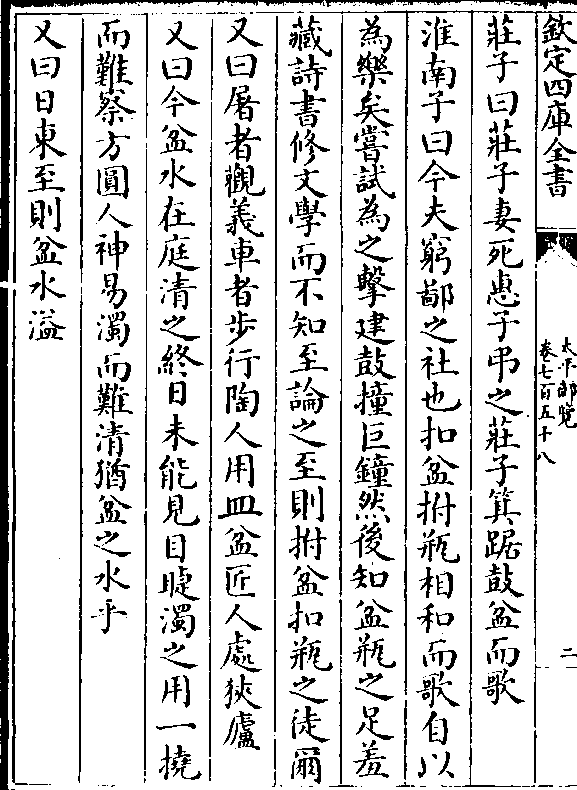 欽定四庫全書
太平御覽
卷七百五十八
二
莊子曰莊子妻死惠子弔之莊子箕踞鼓盆而歌
淮南子曰今夫窮鄙之社也扣盆拊瓶相和而歌自以
為樂矣嘗試為之擊建鼓撞巨鐘然後知盆瓶之足羞
藏詩書修文學而不知至論之至則拊盆扣瓶之徒爾
又曰屠者觀義車者步行陶人用皿盆匠人處狹廬
又曰今盆水在庭清之終日未能見目睫濁之用一撓
而難察方圓人神易濁而難清猶盆之水乎
又曰日東至則盆水溢